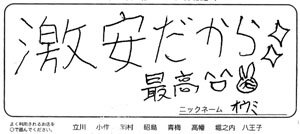 激安だから
最高
ニックネーム オウミ
よく利用されるお店を
○で囲んでください。
立川 小作 羽村 昭島 青梅 高幡 堀之内 八王子